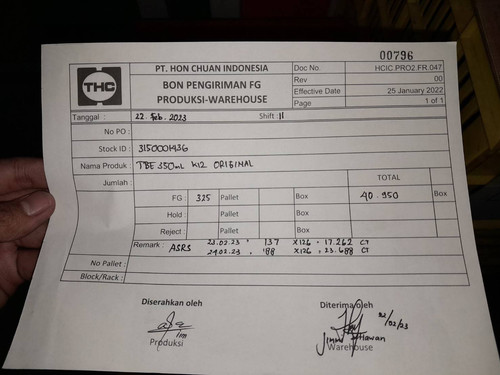 00796
THC
PT. HON CHUAN INDONESIA
BON PENGIRIMAN FG
PRODUKSI-WAREHOUSE
Doc No. HCIC.PRO2.FR.047
Rev 00
Effective Date 25 January 2022
Page 1 of 1
Tanggal : 22. Feb. 2023 Shift : II
No PO :
Stock ID : 3150001436
Nama Produk : TBE 350ml K12 ORIGINAL
Jumlah : TOTAL
FG : 325 Pallet Box 40.950 Box
Hold : Pallet Box
Reject : Pallet Box
Remark : ASRS 23.02.23 . 137 X126 = 17.262 CT
24.02.23 . 188 X126 = 23.688 CT
No Pallet :
Block/Rack :
Diserahkan oleh
Diterima oleh
22/02/23
Produksi
Warehouse